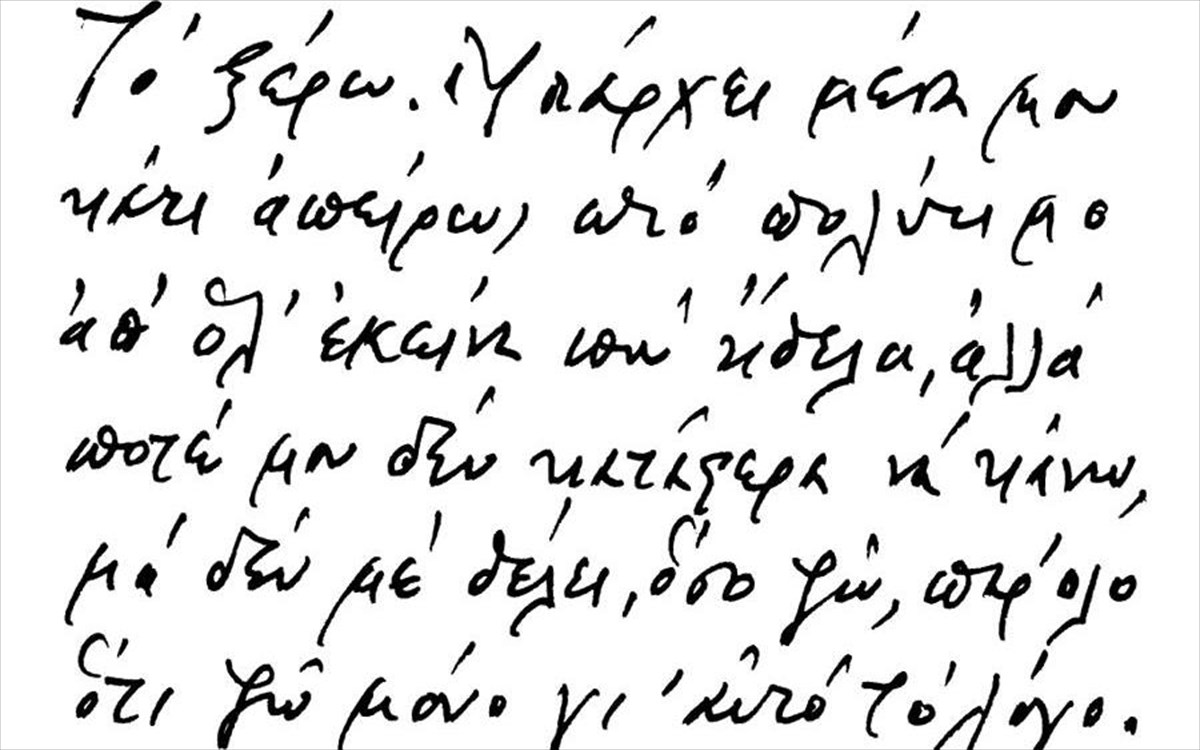 Τό ξέρω. Ὑπάρχει μέσα μου
κάτι ἀπείρως πιό πολύτιμο
ἀπ' ὅλ' ἐκεῖνα πού ἤθελα, ἀλλά
ποτέ μου δέν κατάφερα νά κάνω,
μά δέν μέ θέλει, ὅσο ζῶ, παρόλο
ὅτι ζῶ μόνο γι' αὐτό τό λόγο.